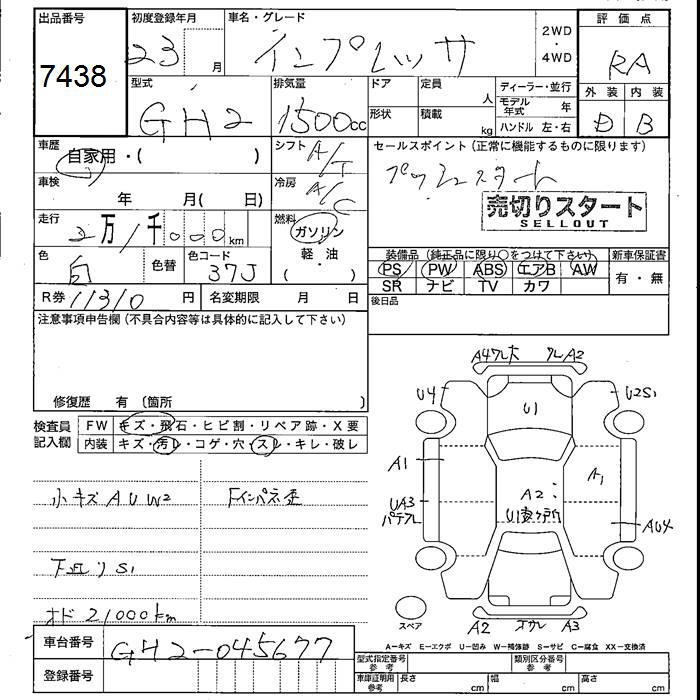 出品番号
7438
初度登録年月
23 月
車名・グレード
インプレッサ
2WD
・
4WD
評価点
RA
型式
GH2
排気量
1500cc
ドア
定員
人
形状
積載
kg
ディーラー・並行
モデル年式 年
ハンドル 左・右
外装 内装
D B
車歴
自家用・( )
シフト A/T
車検
年 月( 日)
冷房 A/C
走行
2万1千000km
燃料
ガソリン
軽・油
( )
色 白
色替
色コード
37J
R券 11310 円
名変期限 月 日
セールスポイント(正常に機能するものに限ります)
プッシュスタート
売切りスタート
SELLOUT
装備品(純正品に限り○をつけて下さい)
PS PW ABS エアB AW
SR ナビ TV カワ
新車保証書
有・無
後日品
注意事項申告欄(不具合内容等は具体的に記入して下さい)
修復歴 有(箇所 )
検査員記入欄
FW キズ・飛石・ヒビ割・リペア跡・X要
内装 キズ・汚レ・コゲ・穴・スレ・キレ・破レ
小キズ A U W2
Fインパネ歪
下廻りS1
オド 21000km
車台番号 GH2-045677
登録番号
A4ワレ大
ワレA2
U4
U2S1
U1
A1
A1
UA3
A2
A U4
スペア
A2
A3
A-キズ E-エクボ U-凹み W-補修跡 S-サビ C-腐食 XX-交換済
型式指定番号
参考
類別区分番号
参考
車庫証明用
参考
長さ cm
幅 cm
高さ cm